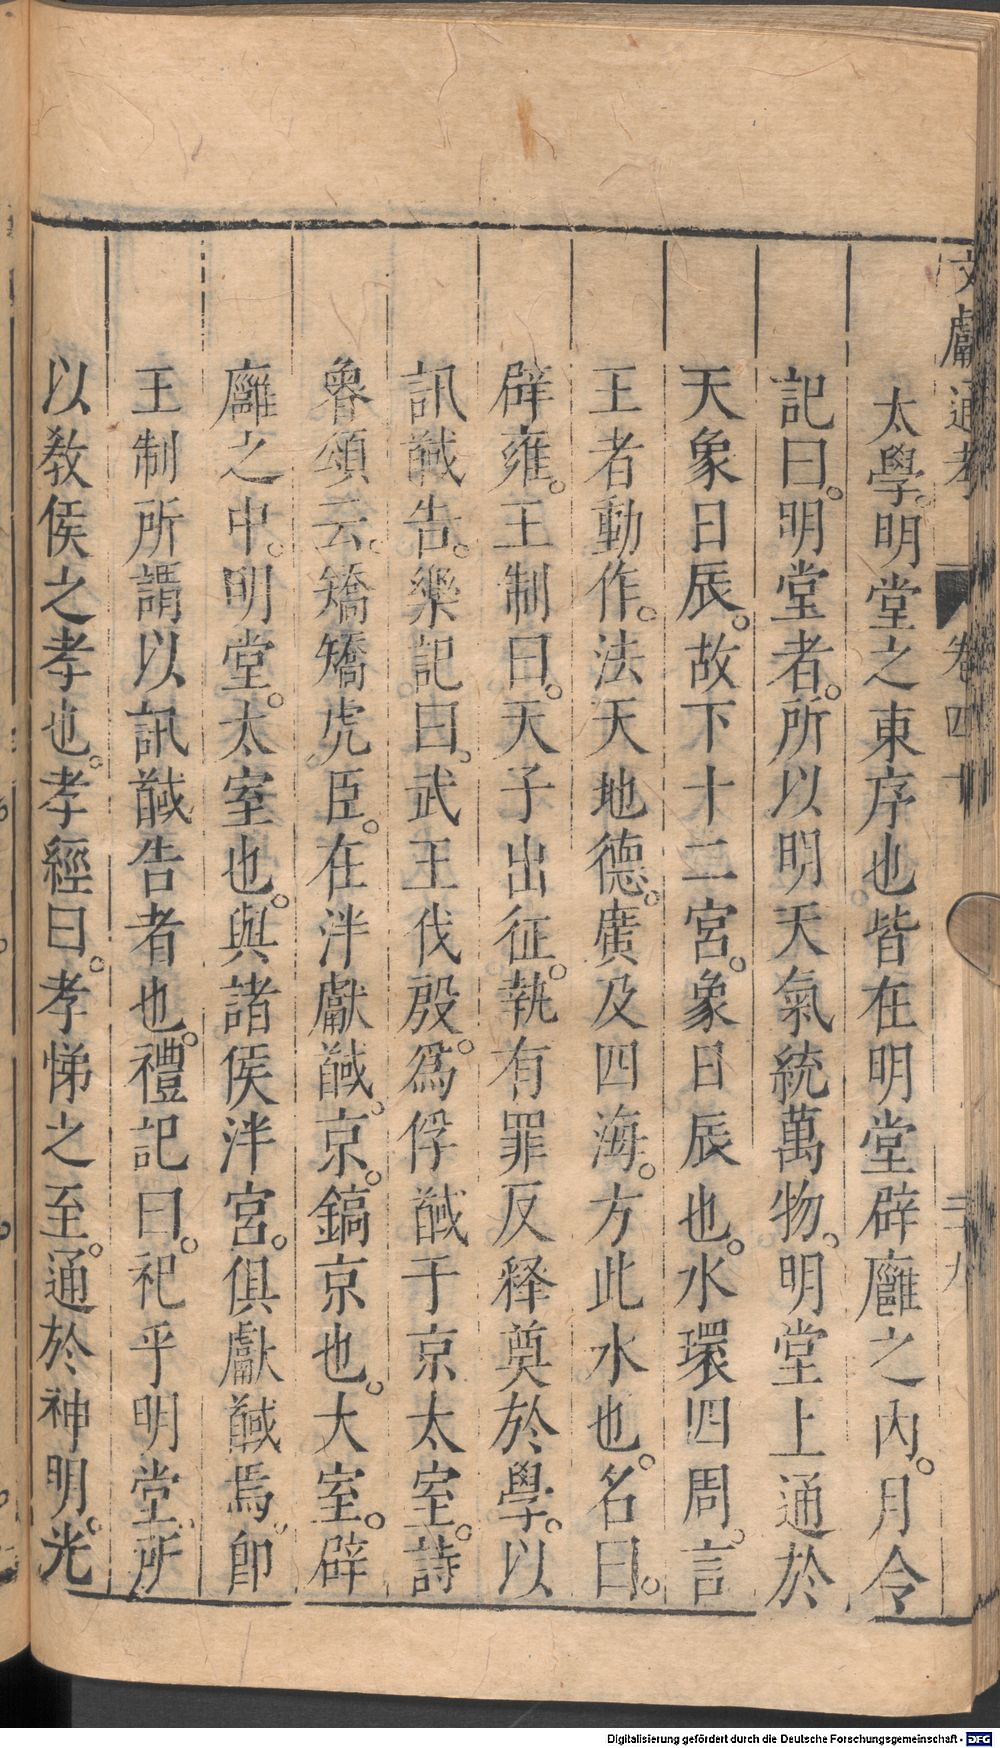 文獻通考 卷四十 三十九
太學。明堂之東序也。皆在明堂辟廱之內。月令
記曰。明堂者。所以明天氣統萬物。明堂上通於
天象日辰。故下十二宮。象日辰也。水環四周。言
王者動作。法天地德。廣及四海。方此水也。名曰。
辟雍。王制曰。天子出征。執有罪反释奠於學。以
訊馘告。樂記曰。武王伐殷。為俘馘于京太室。詩
魯頌云。矯矯虎臣。在泮獻馘。京。鎬京也。大室。辟
廱之中。明堂。太室也。與諸侯泮宮。俱獻馘焉。卽
王制所謂以訊馘告者也。禮記曰。祀乎明堂。所
以教侯之孝也。孝經曰。孝悌之至。通於神明。光
Digitalisierung gefördert durch die Deutsche Forschungsgemeinschaft - DFG